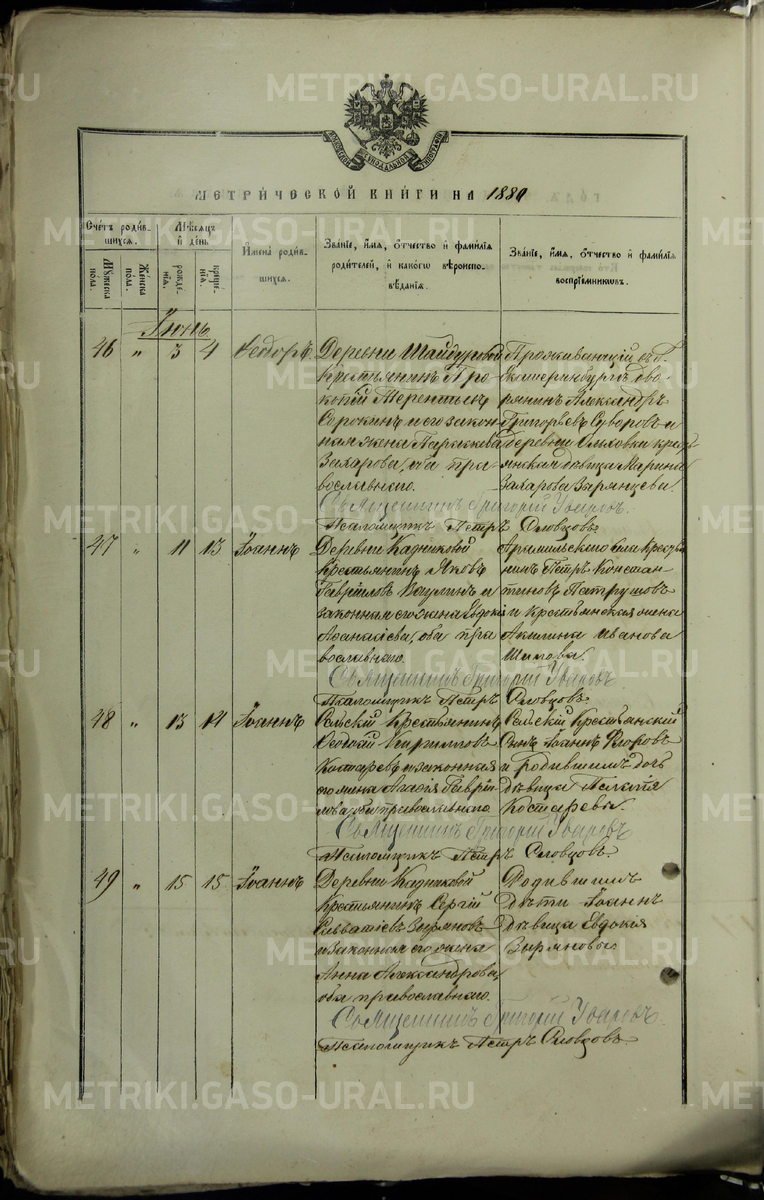 METRIKI.GASO-URAL.RU
МЕТРИ́ЧЕСКОЙ КНИ́ГИ НА 1880
Счетъ роди́в-
шихся.
Му́жеска
пола.
Же́нска
пола.
Мѣ́сяцъ
и҆ де́нь
рожде́-
нїѧ.
креще́-
нїѧ.
И҆мена роди́в-
шихся.
Зва́нїе, и҆́мя, ѻ҆́тчество и҆ фами́лїя
роди́телей, и҆ како́гѡ вѣроиспо-
вѣ́данїя.
Зва́нїе, и҆́мя, ѻ҆́тчество и҆ фами́лїя
воспрїе́мникѡвъ.
Іюнь
46 " 3 4 Ѳеодоръ.
Деревни Шайдуровой
крестьянинъ Про-
копій Терентьевъ
Сорокинъ и его закон-
ная жена Параскева
Захарова, оба пра-
вославнаго.
Проживающій въ Е-
катеринбургѣ дво-
рянинъ Александръ
Григорьевъ Суворовъ и
деревни Ольховки крест-
янская дѣвица Марина
Захарова Зырянцева.
Священникъ Григорій Уваровъ.
Псаломщикъ Петръ Словцовъ.
47 " 11 13 Іоаннъ
Деревни Кадниковой
крестьянинъ Яковъ
Гавріиловъ Ваулинъ и
законная его жена Евдокія
Аѳанасіева, оба пра
вославнаго.
Арамильскаго села кресть
нинъ Петръ Констан-
тиновъ Патрушовъ
и крестьянская жена
Акилина Иванова
Шилова.
Священникъ Григорій Уваровъ
Псаломщикъ Петръ Словцовъ
48 " 13 14 Іоаннъ
Сельскій крестьянинъ
Ѳеодосій Кирилловъ
Костаревъ и законная
его жена Агафія Гаврій-
лова, оба православнаго.
Сельскій крестьянскій
сынъ Іоаннъ Егоровъ
и родившимъ дочь
дѣвица Пелагія
Костаревы.
Священникъ Григорій Уваровъ
Псаломщикъ Петръ Словцовъ.
49 " 15 15 Іоаннъ
Деревни Кадниковой
крестьянинъ Сергій
Савватіевъ Зыряновъ
и законная его жена
Анна Александрова,
оба православнаго.
Родившимъ
дѣти Іоаннъ
дѣвица Евдокія
Зыряновы
Священникъ Григорій Уваровъ.
Псаломщикъ Петръ Словцовъ.